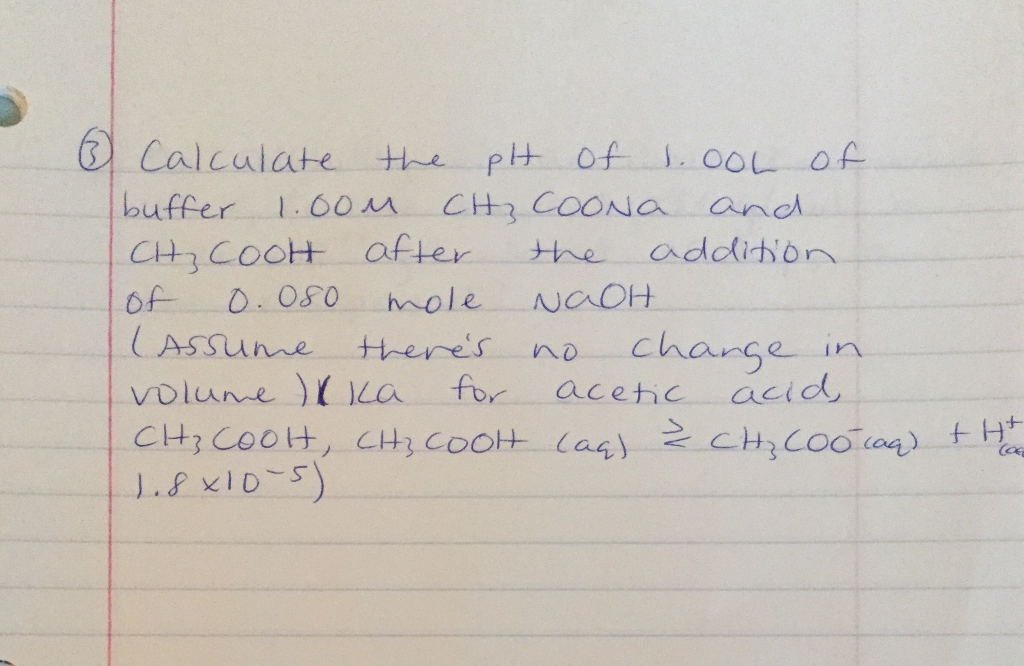 ③ Calculate the pH of 1.00L of
buffer 1.00M CH₃COONa and
CH₃COOH after the addition
of 0.080 mole NaOH
(Assume there's no change in
volume)( Ka for acetic acid,
CH₃COOH, CH₃COOH (aq) ⇌ CH₃COO⁻(aq) + H⁺
1.8 x10-5)